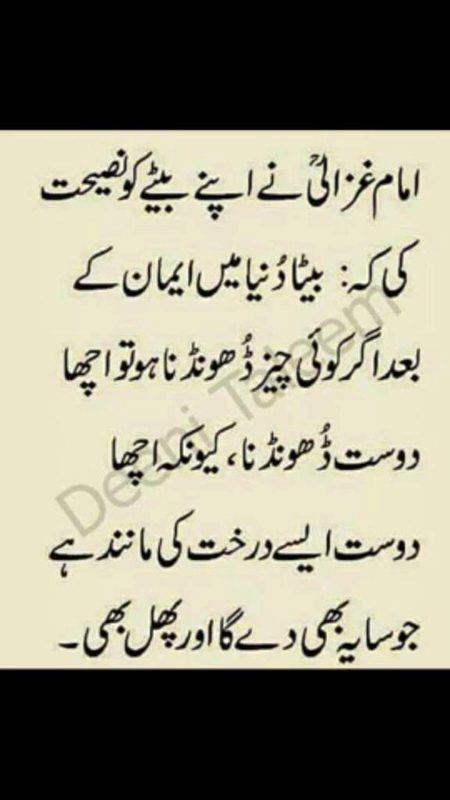 امام غزالیؒ نے اپنے بیٹے کو نصیحت
کی کہ: بیٹا دُنیا میں ایمان کے
بعد اگر کوئی چیز ڈُھونڈنا ہو تو اچھا
دوست ڈُھونڈنا، کیونکہ اچھا
دوست ایسے درخت کی مانند ہے
جو سایہ بھی دے گا اور پھل بھی۔
Deeni Taleem